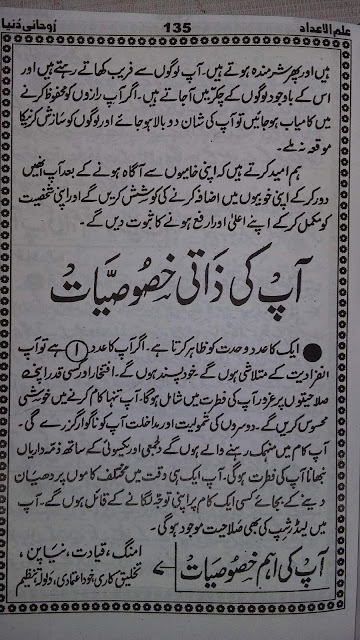 علم الاعداد 135 رُوحانی دُنیا
ہیں اور پھر شرمندہ ہوتے ہیں۔ آپ لوگوں سے فریب کھاتے رہتے ہیں اور
اس کے باوجود لوگوں کے چکر میں آجاتے ہیں۔ اگر آپ رازوں کو محفوظ کرنے
میں کامیاب ہوجائیں تو آپ کی شان دوبالا ہوجائے اور لوگوں کو سازش کرنیکا
موقعہ نہ ملے۔
ہم امید کرتے ہیں کہ اپنی خامیوں سے آگاہ ہونے کے بعد آپ انھیں
دور کرکے اپنی خوبیوں میں اضافہ کرنے کی کوشش کریں گے اور اپنی شخصیت
کو مکمل کرکے اپنے اعلیٰ اور ارفع ہونے کا ثبوت دیں گے۔
آپ کی ذاتی خصوصیات
● ایک کا عدد وحدت کو ظاہر کرتا ہے۔ اگر آپ کا عدد ۱ ہے تو آپ
انفرادیت کے متلاشی ہوں گے خود پسند ہوں گے۔ افتخار اور کسی قدر اپنی
صلاحیتوں پر غرور آپ کی فطرت میں شامل ہوگا۔ آپ تنہا کام کرنے میں خوشی
محسوس کریں گے۔ دوسروں کی شمولیت اور مداخلت آپ کو ناگوار گزرے گی۔
آپ کام میں منہمک رہنے والے ہوں گے دلجمعی اور یکسوئی کے ساتھ ذمہ داریاں
نبھانا آپ کی فطرت ہوگی۔ آپ ایک ہی وقت میں مختلف کاموں پر دھیان
دینے کے بجائے کسی ایک کام پر اپنی توجہ لگانے کے قائل ہوں گے۔ آپ
میں لیڈر شپ کی بھی صلاحیت موجود ہوگی۔
آپ کی اہم خصوصیات ← امنگ، قیادت، نیا پن،
تخلیق کاری، خود اعتمادی، ولولہ، تنظیم